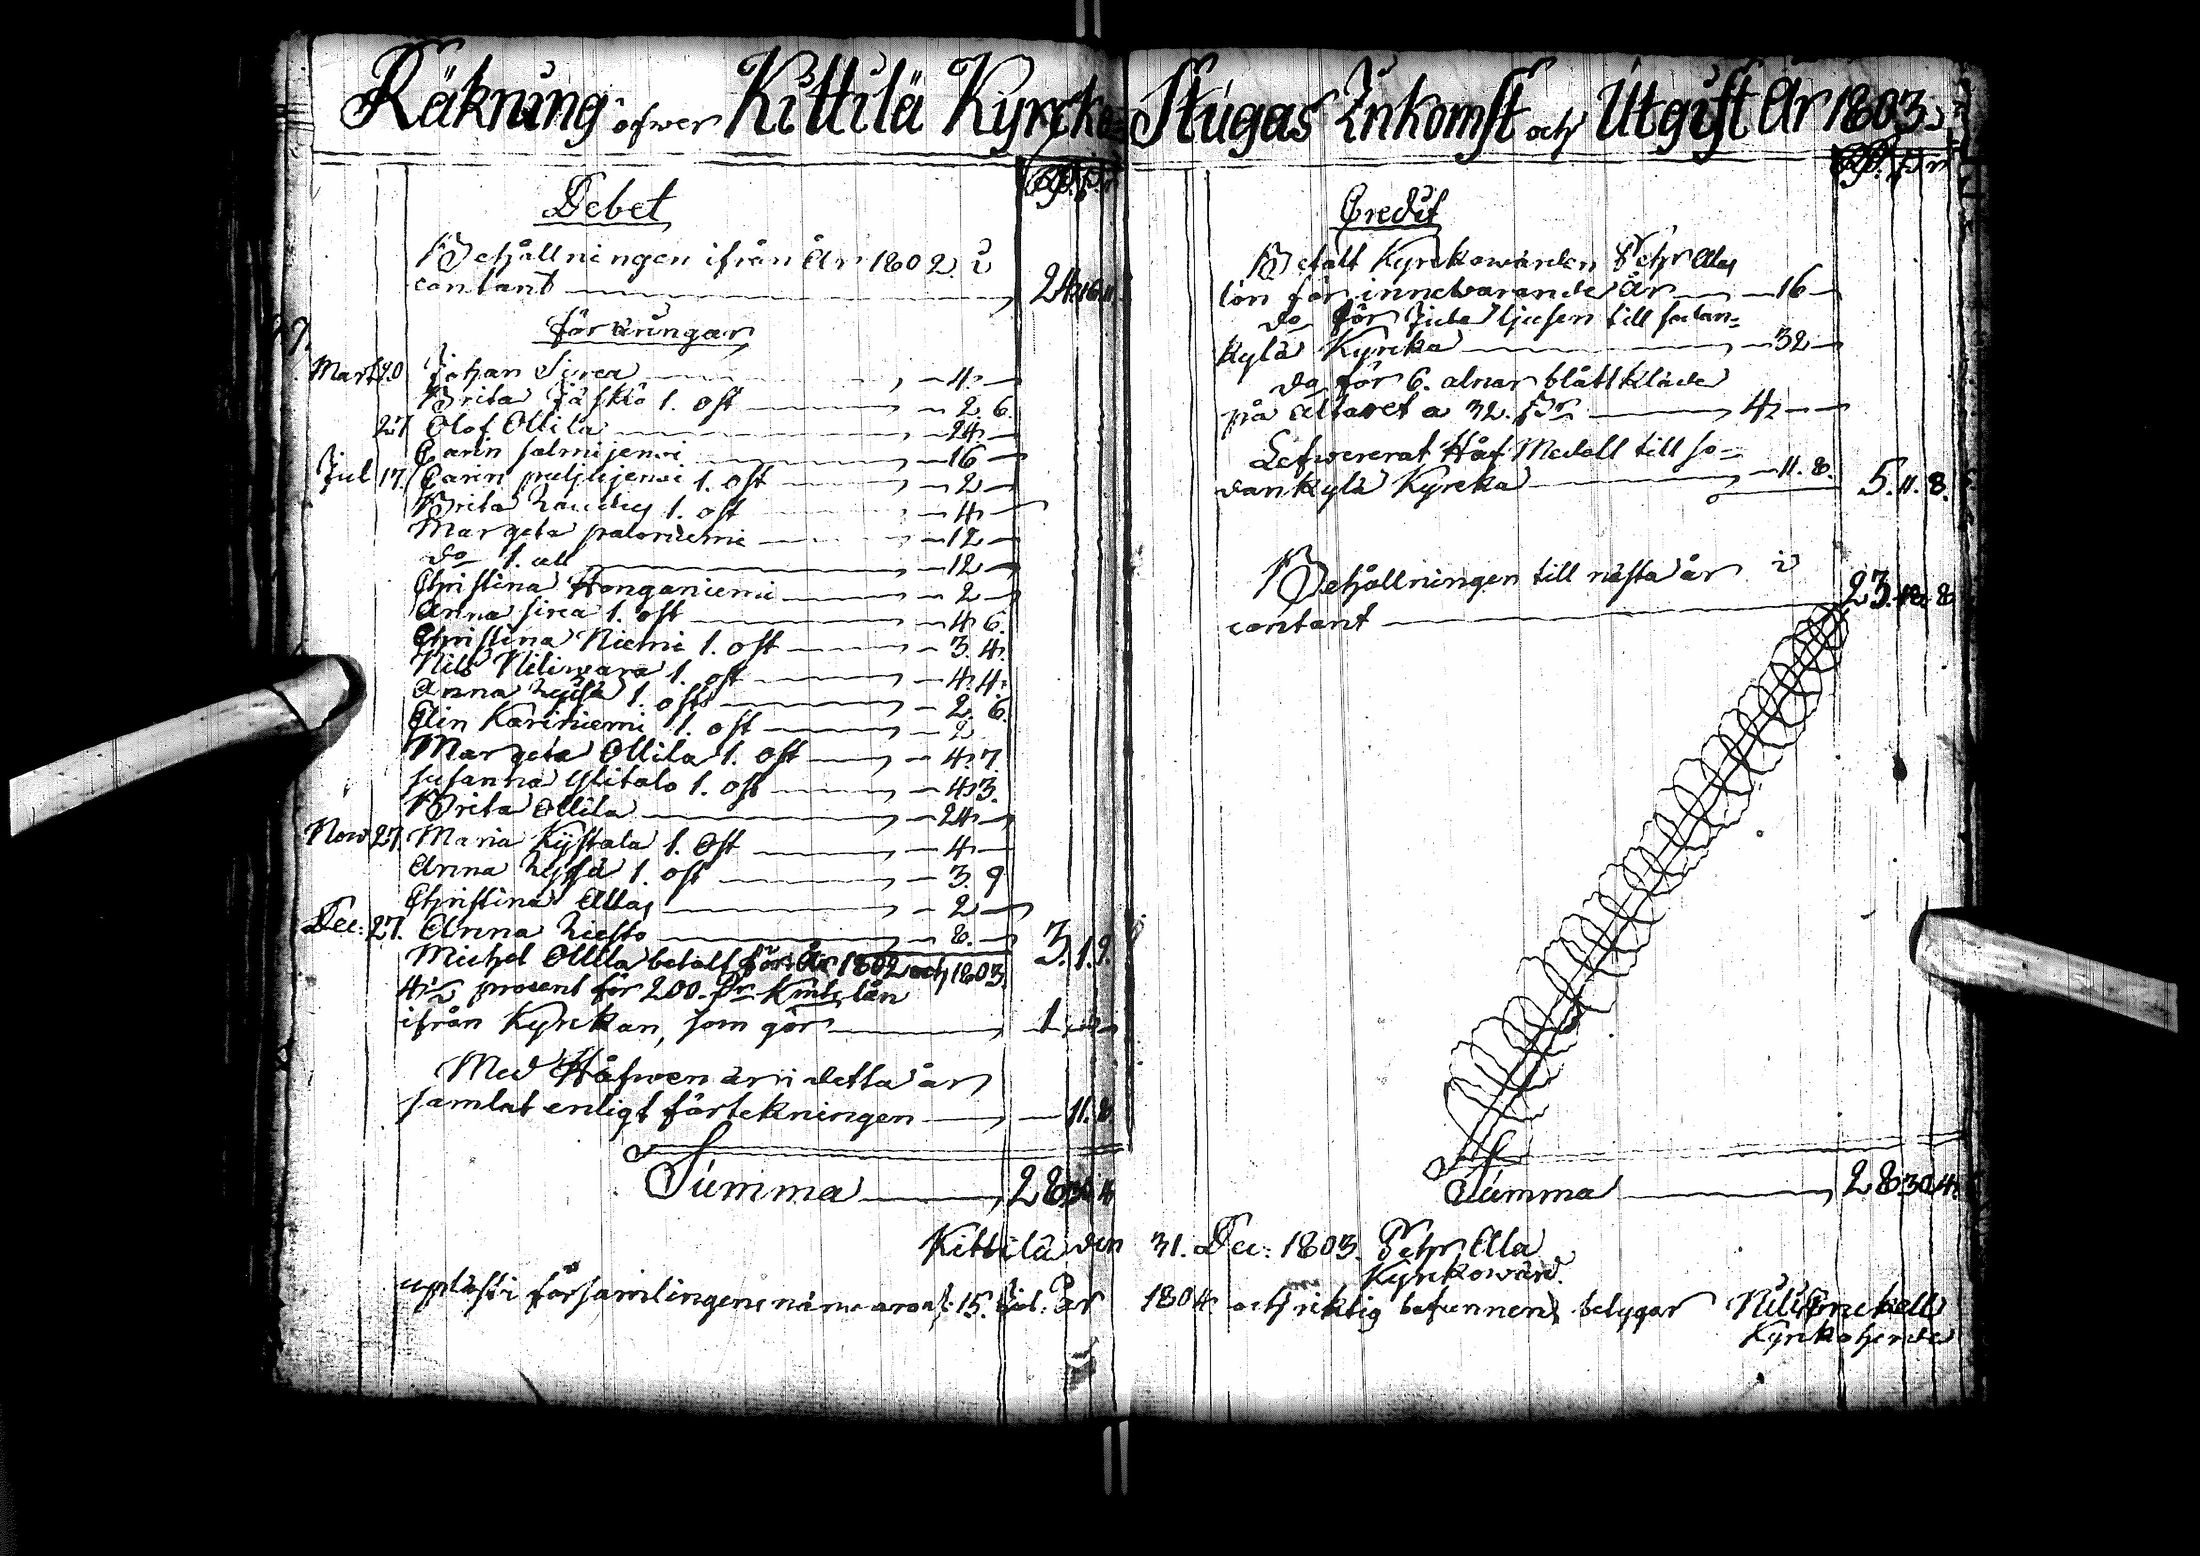 Räkning öfwer Kittilä Kyrcko= Stugas Inkomst och Utgift År 1803.
Debet
Behållningen ifrån År 1802 i
contant 24 16 11
föräringar
Mart 20 Johan Sirca 4
Brita Jäskö 1. ost 2 6.
27 Olof Ollila 24
Carin salmijerwi 16
Jul 17. Carin puljujerwi 1. ost 2
Brita 1. ost 4
Margeta paloniemi 12
do 1. all 12
Christina Honganiemi 2
Anna sirca 1. ost 4 6.
Christina Niemi 1. ost 3. 4.
Nils Niliwara 1. ost 4. 4.
Anna 1. ost 2. 6.
Elin Kariniemi 1. ost 2
Margeta Ollila 1. ost 4. 7
susanna Ylitalo 1. ost 4. 3.
Brita Ollila 24
Now 27. Maria Kÿstala 1. Ost 4
Anna 1. ost 3. 9
Christina Allas 2
Dec: 27. Anna 8. 3. 1. 9.
Michel Ollila betalt för År 1802 och 1803.
prosent för 200. lån
ifrån Kyrckan, som gör 1
Med Håfwen är i detta år
samlat enligt förtekningen 11. 8
Summa 28 30 4
Credit
Betalt Kyrckowärden Pehr Allas
lön för innewarande År 16
do för Jula ljusen till sodan=
kylä Kyrcka 32
do för 6. alnar blått kläde
på altaret a 32. 4
Lefwererat Håf Medell till so=
dankylä Kyrcka 11. 8. 5. 11. 8.
Behållningen till nästa år i
contant 23. 18 8
Summa 28 30 4
Kittilä den 31. Dec: 1803. Pehr Alla
Kyrckowärd.
upläst i församlingens närwaro d. 15. Jul: År 1804 och riktig befunnen, betygar Nils
Kyrckoherde